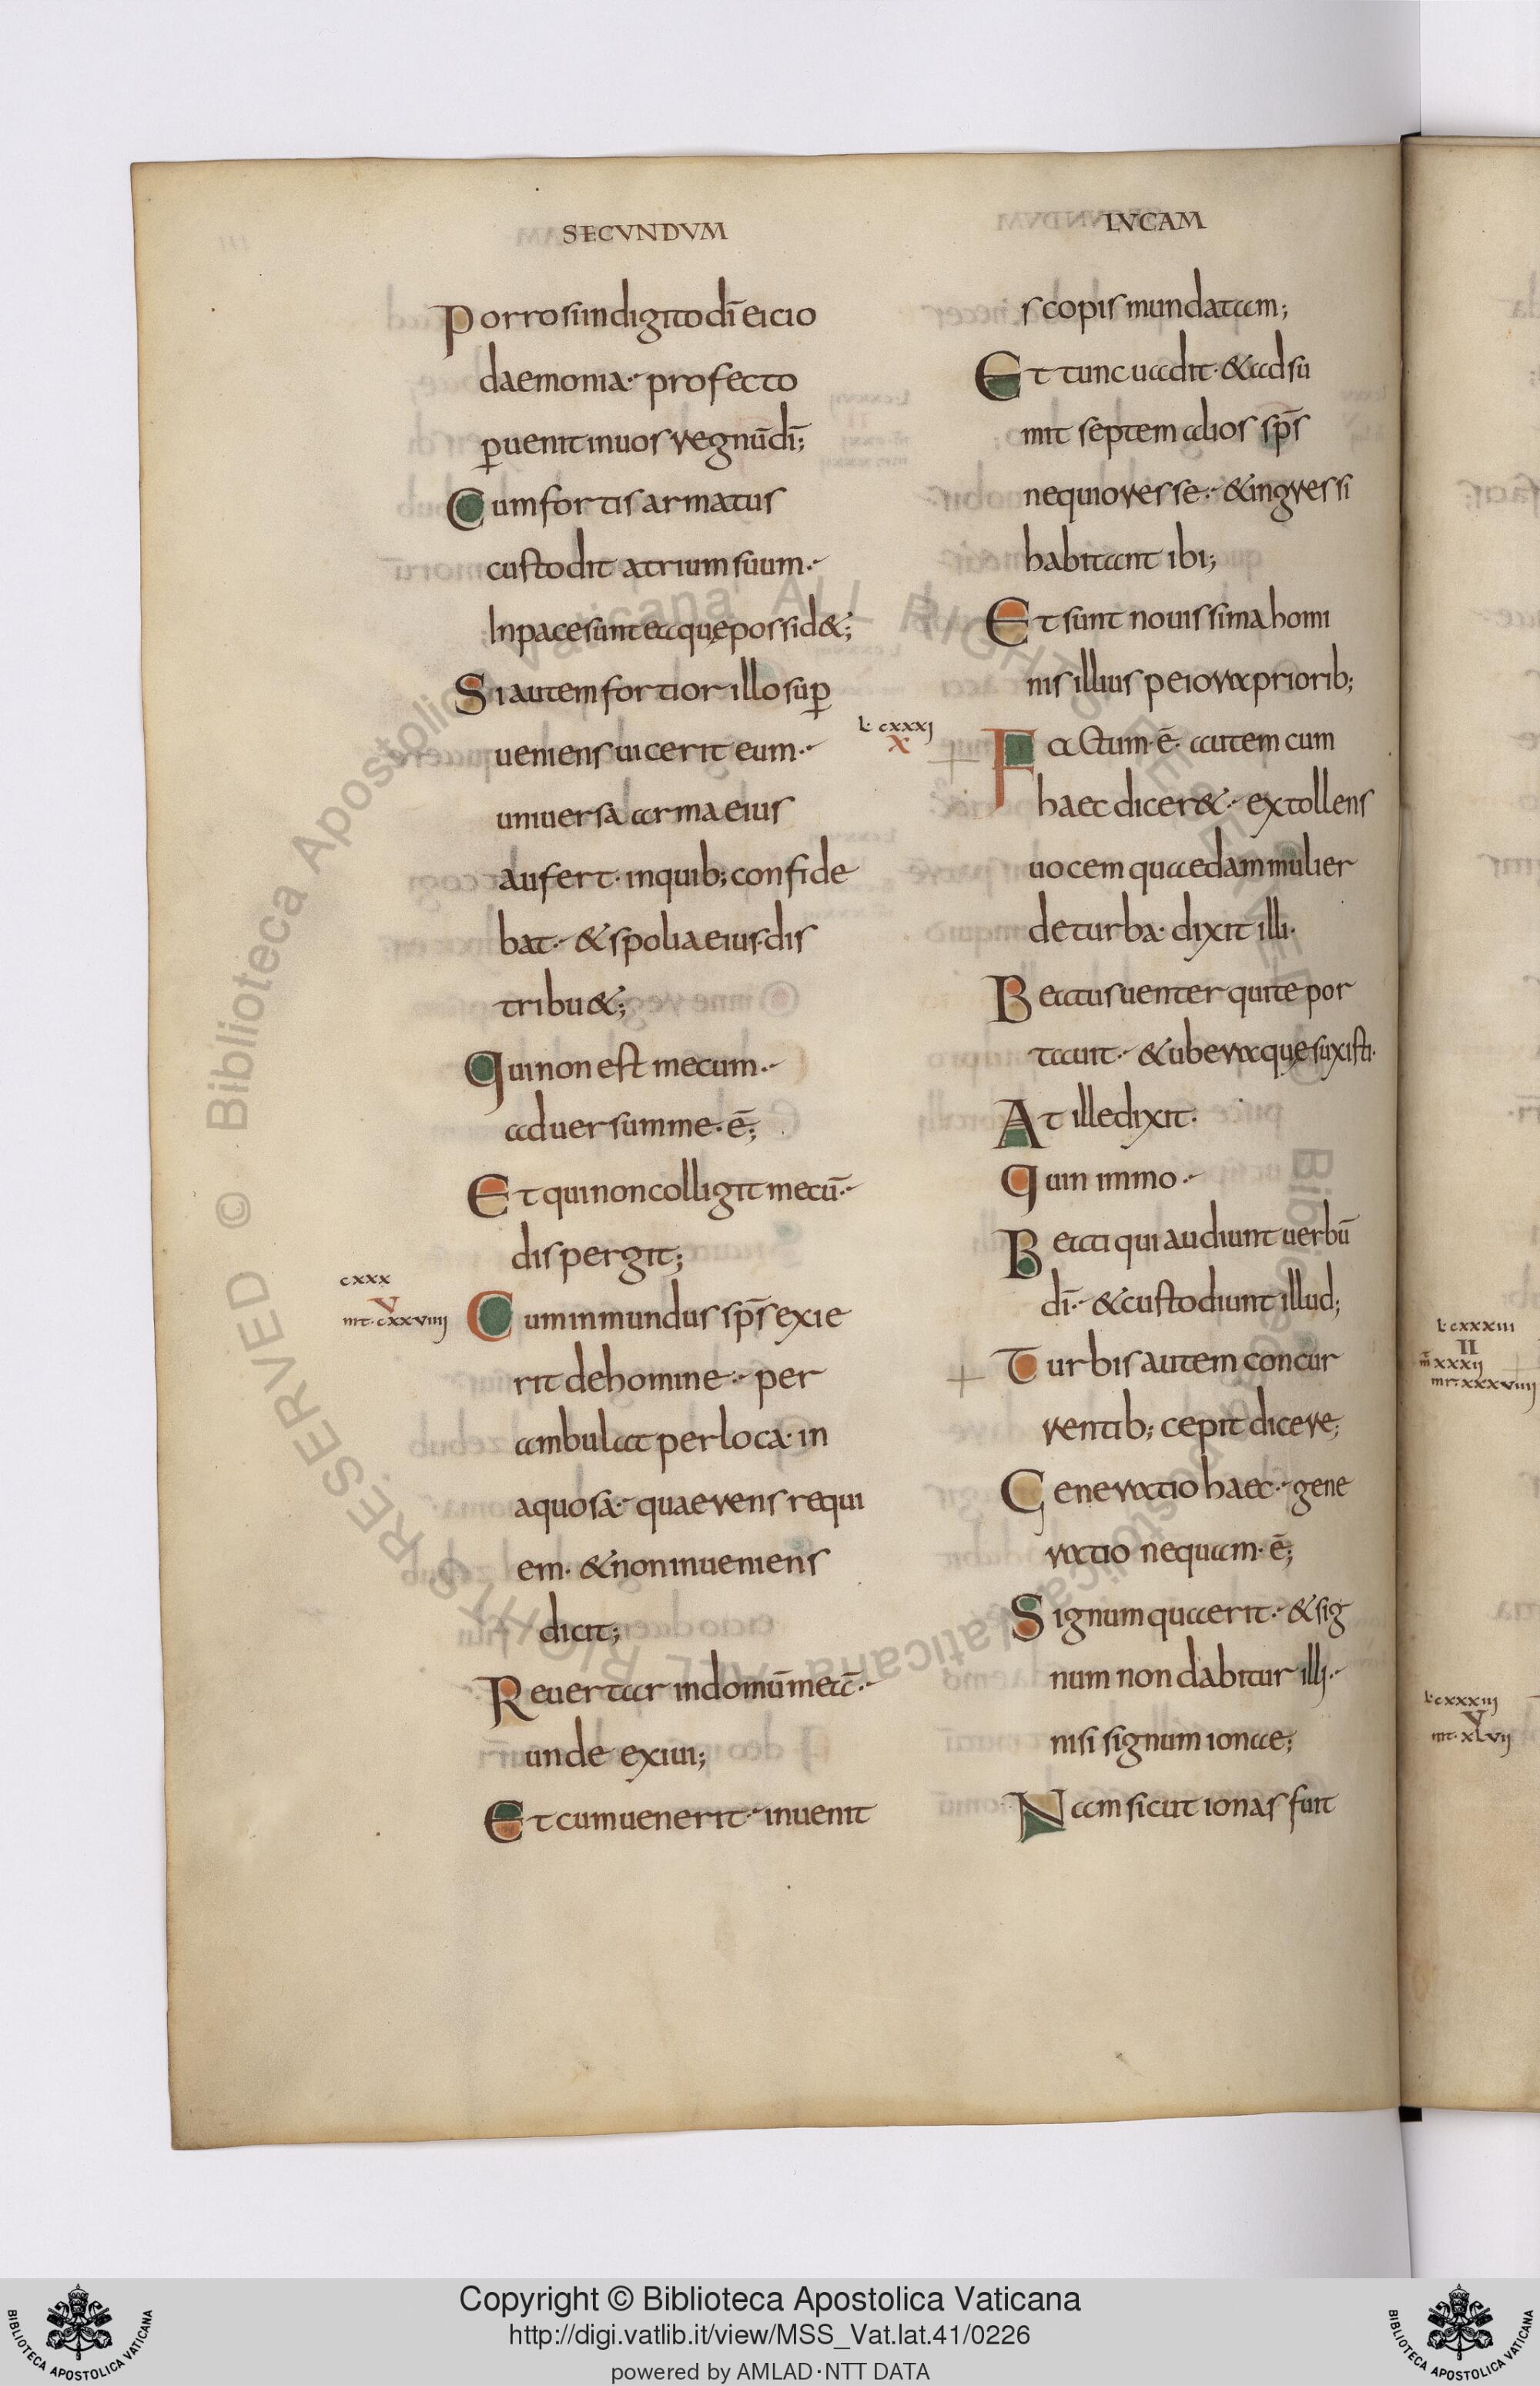 SECVNDVM
Porro si in digito dī eicio
daemonia· profecto
ꝑuenit in uos regnū dī;
Cum fortis armatus
custodit atrium suum·
In pace sunt ea quę possid&;
Si autem fortior illo suꝑ
ueniens uicerit eum·
uniuersa arma eius
aufert· in quib; confide
bat· & spolia eius· dis
tribu&;
Qui non est mecum·
aduersum me· ē;
Et qui non colligit mecū·
dispergit;
cxxx
V
mt· cxxviiij
Cum inmundus sp̄s exie
rit de homine· per
ambulat per loca· in
aquosa· quaerens requi
em· & non inueniens
dicit;
Reuertar in domū meā·
unde exiui;
Et cum uenerit· inuenit
LVCAM
scopis mundatam;
Et tunc uadit· & adsu
mit septem alios sp̄s
nequiores se· & ingressi
habitant ibi;
Et sunt nouissima homi
nis illius peiora priorib;
L· cxxxj
X
Factum· ē· autem cum
haec dicer&· extollens
uocem quaedam mulier
de turba· dixit illi·
Beatus uenter qui te por
tauit· & ubera quę suxisti·
At ille dixit·
Quin immo·
Beati qui audiunt uerbū
dī· & custodiunt illud;
Turbis autem concur
rentib; cepit dicere;
Generatio haec· gene
ratio nequam· ē;
Signum quaerit· & sig
num non dabitur illj·
nisi signum ionae;
Nam sicut ionas fuit
L· cxxxiii
II
m̄ xxxij
mt· xxxviiij
L· cxxxiij
V
mt· xlvij
Copyright © Biblioteca Apostolica Vaticana
http://digi.vatlib.it/view/MSS_Vat.lat.41/0226
powered by AMLAD·NTT DATA
BIBLIOTECA APOSTOLICA VATICANA
BIBLIOTECA APOSTOLICA VATICANA
© Biblioteca Apostolica Vaticana ALL RIGHTS RESERVED
© Biblioteca Apostolica Vaticana ALL RIGHTS RESERVED